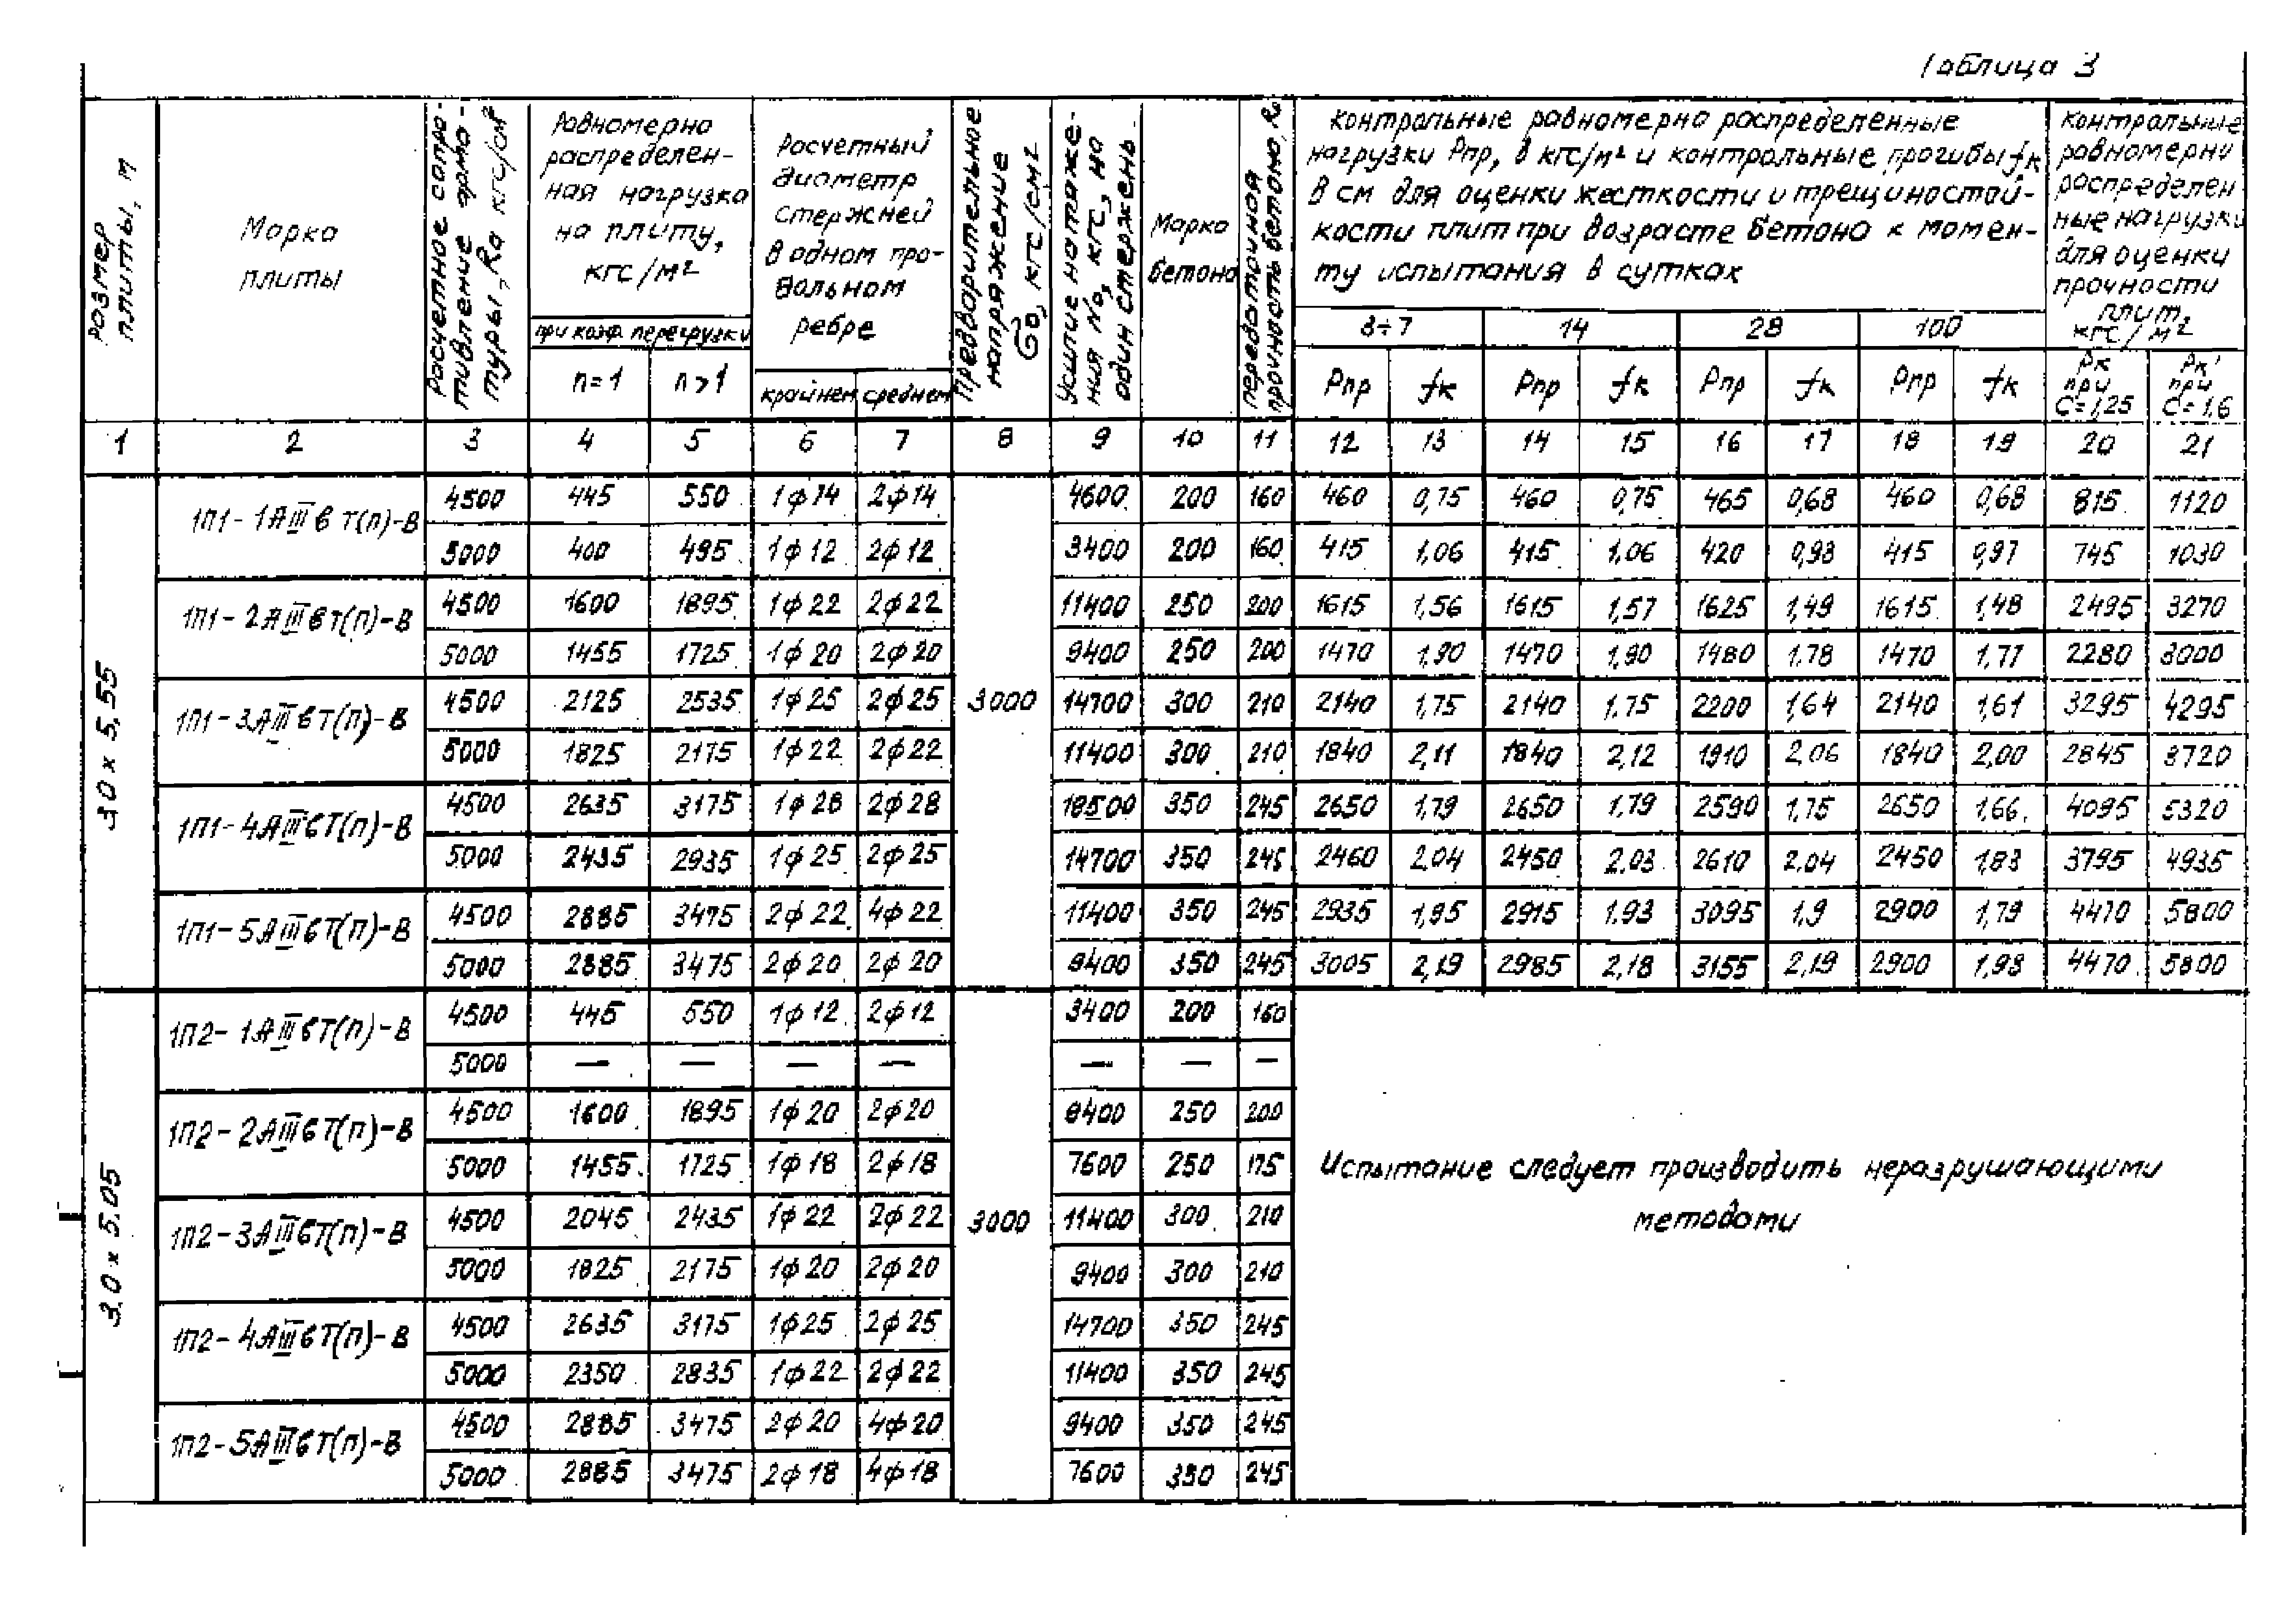 Таблица 3
Размер плиты, м
Марка
плиты
Расчетное сопро-
тивление арма-
туры, Rа кгс/см²
Равномерно
распределен-
ная нагрузка
на плиту,
кгс/м²
при коэф. перегрузки
n=1 n>1
Расчетный
диаметр
стержней
в одном про-
дольном
ребре
крайнем среднем
Предварительное
напряжение
σо, кгс/см²
Усилие натяже-
ния Nо, кгс, на
один стержень
Марка
бетона
передаточная
прочность бетона, Rо
контрольные равномерно распределенные
нагрузки Рпр, в кгс/м² и контрольные прогибы fк
в см для оценки жесткости и трещиностой-
кости плит при возрасте бетона к момен-
ту испытания в сутках
3÷7 14 28 100
Рпр fк Рпр fк Рпр fк Рпр fк
контрольные
равномерно
распределен
ные нагрузки
для оценки
прочности
плит,
кгс/м²
Рк при С=1,25
Рк' при С=1,6
1 2 3 4 5 6 7 8 9 10 11 12 13 14 15 16 17 18 19 20 21
3.0 х 5,55
3000
1П1-1АIIIвТ(п)-В
4500 445 550 1ф14 2ф14 4600 200 160 460 0,75 460 0,75 465 0,68 460 0,68 815 1120
5000 400 495 1ф12 2ф12 3400 200 160 415 1,06 415 1,06 420 0,98 415 0,97 745 1030
1П1-2АIIIвТ(п)-В
4500 1600 1895 1ф22 2ф22 11400 250 200 1615 1,56 1615 1,57 1625 1,49 1615 1,48 2495 3270
5000 1455 1725 1ф20 2ф20 9400 250 200 1470 1,90 1470 1,90 1480 1.78 1470 1,77 2280 3000
1П1-3АIIIвТ(п)-В
4500 2125 2535 1ф25 2ф25 14700 300 210 2140 1,75 2140 1.75 2200 1,64 2140 1,61 3295 4295
5000 1825 2175 1ф22 2ф22 11400 300 210 1840 2,11 1840 2,12 1910 2,06 1840 2,00 2845 3720
1П1-4АIIIвТ(п)-В
4500 2635 3175 1ф28 2ф28 18500 350 245 2650 1,79 2650 1,79 2590 1,75 2650 1,66 4095 5320
5000 2435 2935 1ф25 2ф25 14700 350 245 2460 2,04 2450 2,03 2610 2,04 2450 1,83 3795 4935
1П1-5АIIIвТ(п)-В
4500 2885 3475 2ф22 4ф22 11400 350 245 2935 1,95 2915 1.93 3095 1,9 2900 1,79 4470 5800
5000 2885 3475 2ф20 2ф20 9400 350 245 3005 2,19 2985 2,18 3155 2,19 2900 1,98 4470 5800
3.0 х 5.05
3000
1П2-1АIIIвТ(п)-В
4500 445 550 1ф12 2ф12 3400 200 160
5000 — — — — — — —
1П2-2АIIIвТ(п)-В
4500 1600 1895 1ф20 2ф20 9400 250 200
5000 1455 1725 1ф18 2ф18 7600 250 175
1П2-3АIIIвТ(п)-В
4500 2045 2435 1ф22 2ф22 11400 300 210
5000 1825 2175 1ф20 2ф20 9400 300 210
1П2-4АIIIвТ(п)-В
4500 2635 3175 1ф25 2ф25 14700 350 245
5000 2350 2835 1ф22 2ф22 11400 350 245
1П2-5АIIIвТ(п)-В
4500 2885 3475 2ф20 4ф20 9400 350 245
5000 2885 3475 2ф18 4ф18 7600 350 245
Испытание следует производить неразрушающими
методами